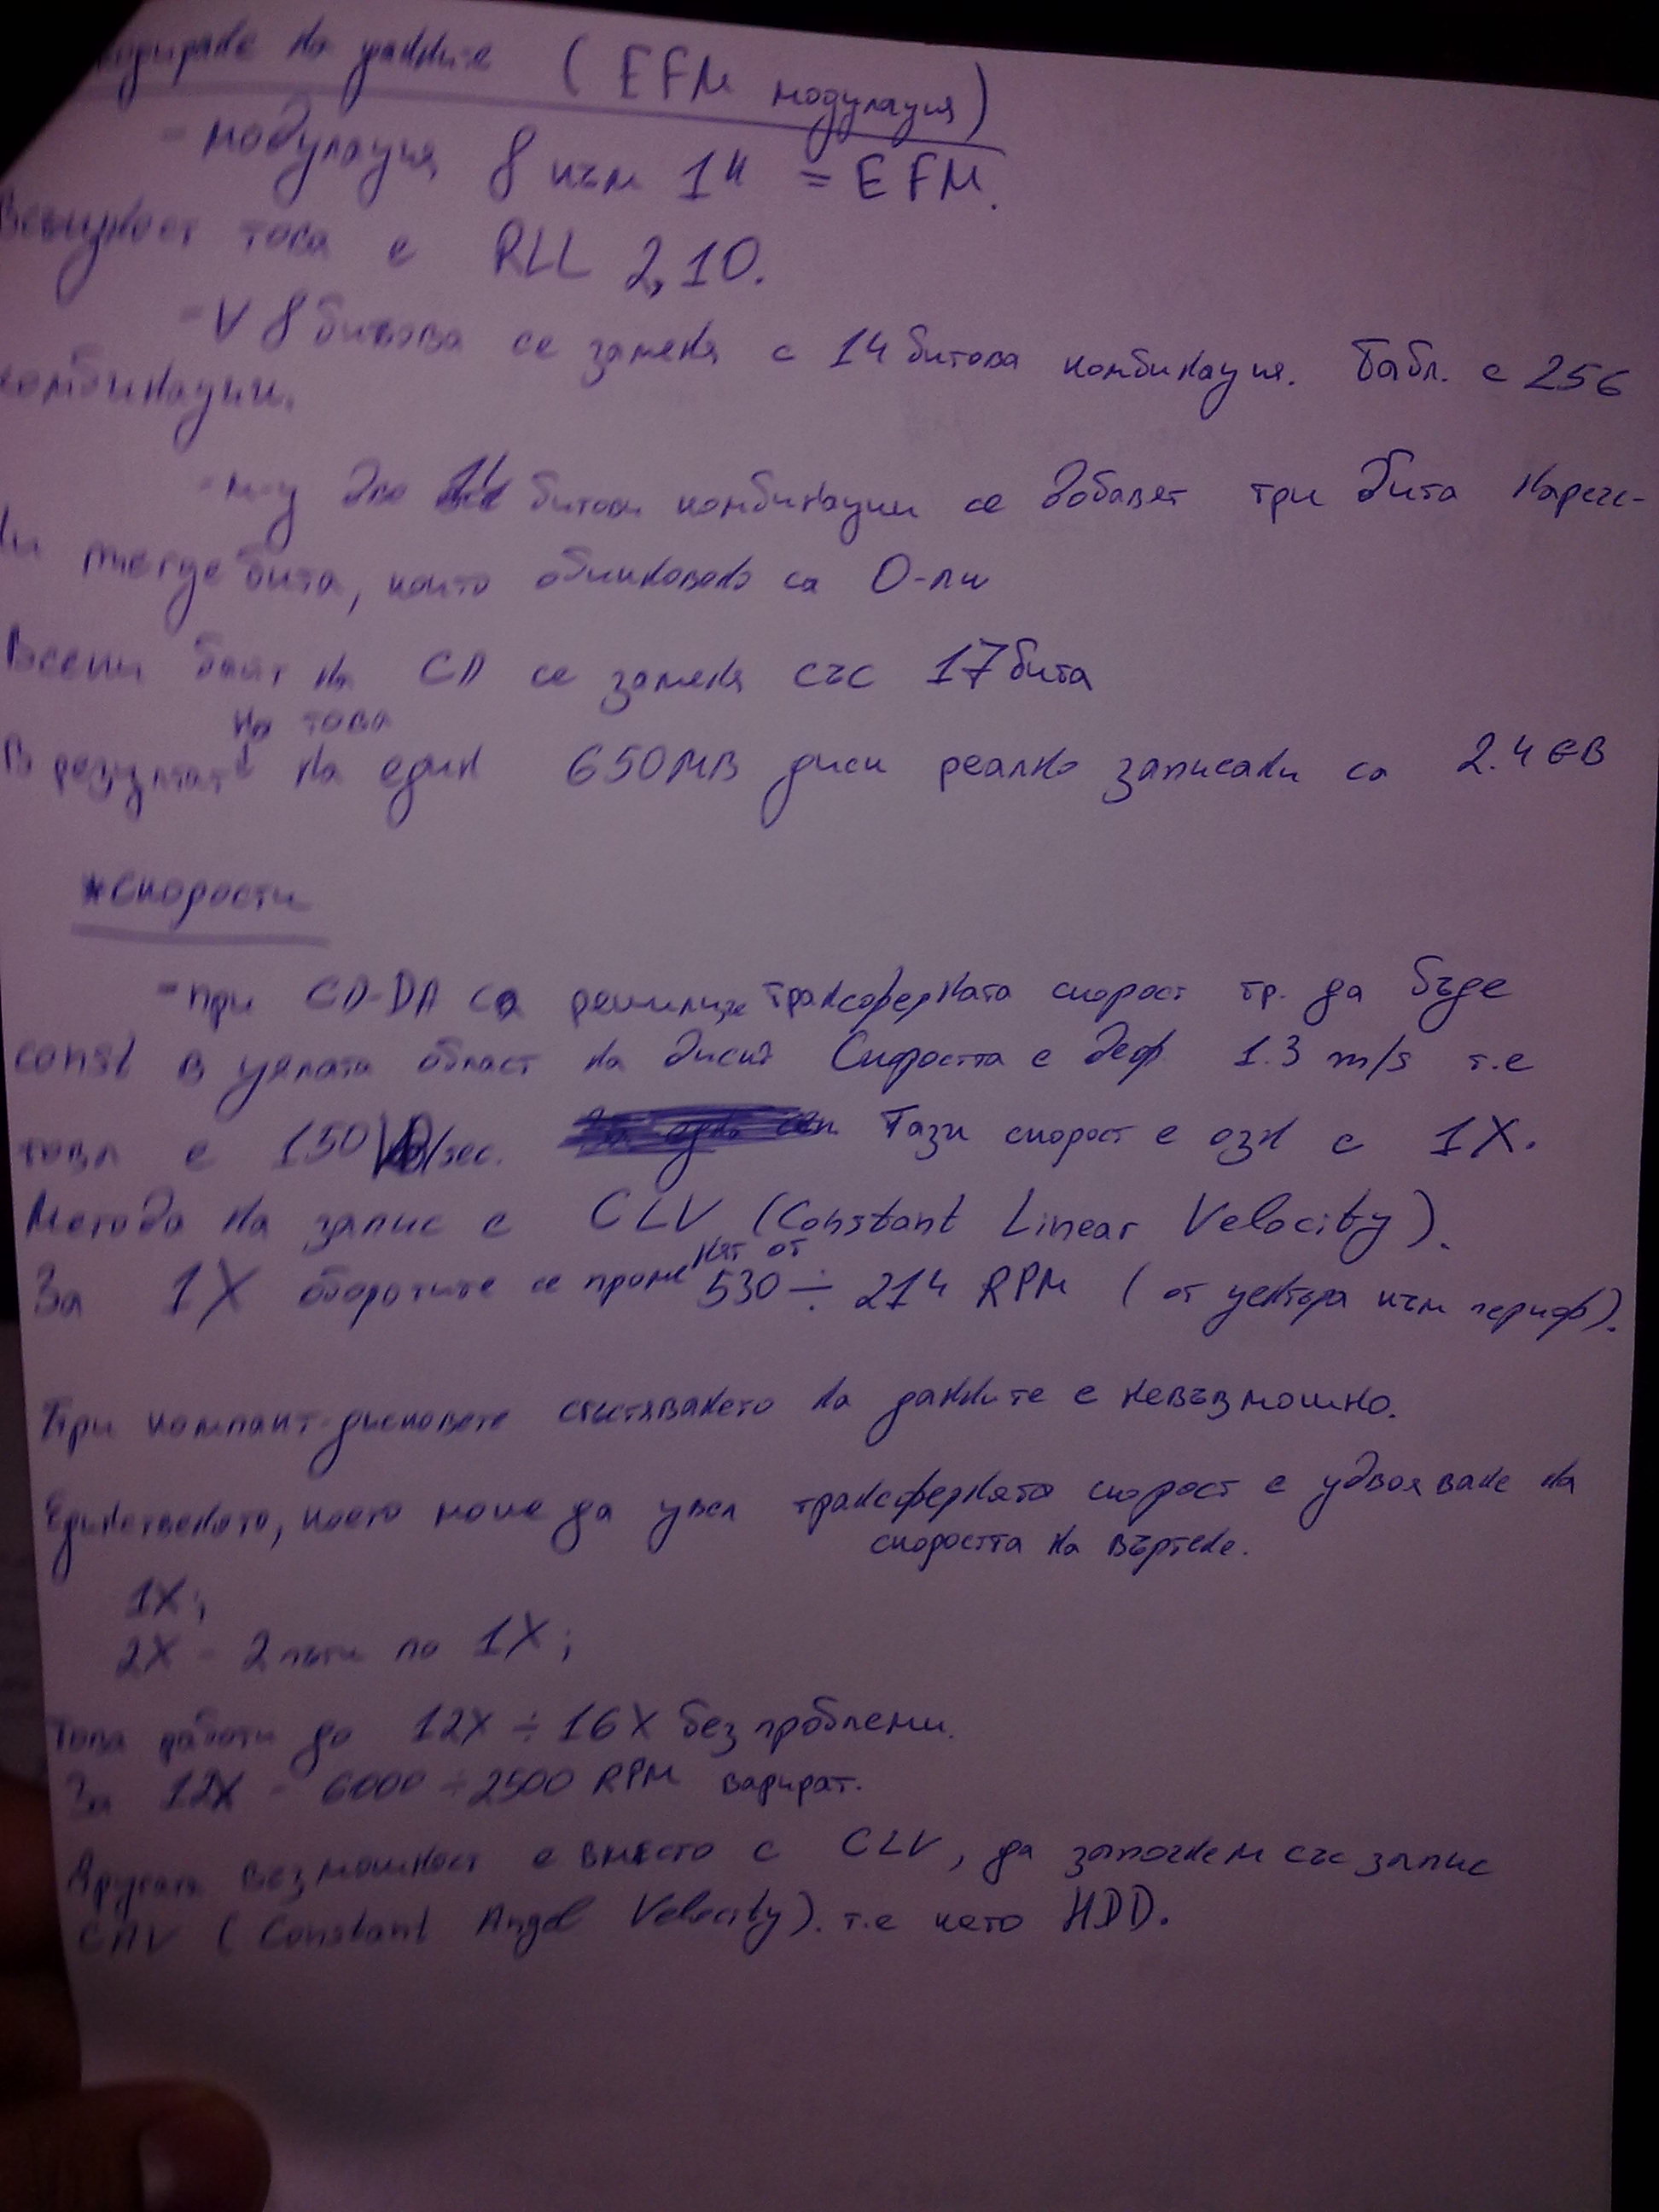 кодиране на данните (EFM модулация)
- модулация 8 към 14 = EFM.
Всъщност това е RLL 2,10.
- ∀ 8 битова се заменя с 14 битова комбинация. Табл. с 256
комбинации.
- м-у две 14 битови комбинации се добавят три бита нарече-
ни merge бита, които обикновено са 0-ли
Всеки байт на CD се заменя със 17 бита
В резултат на това на един 650MB диск реално записани са 2.4 GB
*скорости
- при CD-DA са решили, че трансферната скорост тр. да бъде
const в цялата област на диска Скоростта е деф 1.3 m/s т.е
това е 150 /sec. Тази скорост е озн с 1X.
Метода на запис е CLV (Constant Linear Velocity).
За 1X оборотите се променят от 530 ÷ 214 RPM (от центъра към периф).
При компакт-дисковете сгъстяването на данните е невъзможно.
Единственото, което може да увел трансферната скорост е удвояване на
скоростта на въртене.
1X;
2X - 2 пъти по 1X;
Това работи до 12X ÷ 16X без проблеми.
За 12X - 6000 ÷ 2500 RPM варират.
Другата възможност е вместо с CLV, да започнем със запис
CAV (Constant Angel Velocity). т.е като HDD.